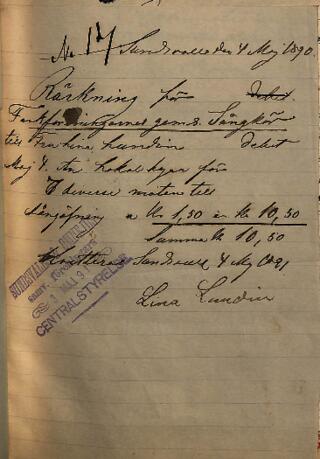 No 17 Sundsvall den 4 Maj 1890.
Räkning för
gem.s. Sångkör
till Fru Line Lundin debet
Maj 4. An lokalhyra för
7 diverse möten till
sångöfning a Kr 1,50 är Kr 10,50
Summa Kr 10,50
Kvitteras Sundsvall 4 Maj 1891
Lina Lundin
SUNDSVALLS
MAJ 91
CENTRALSTYRELSE